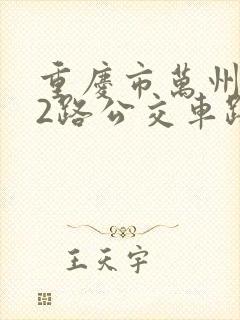 重慶市萬州
2路公交車路
王天宇